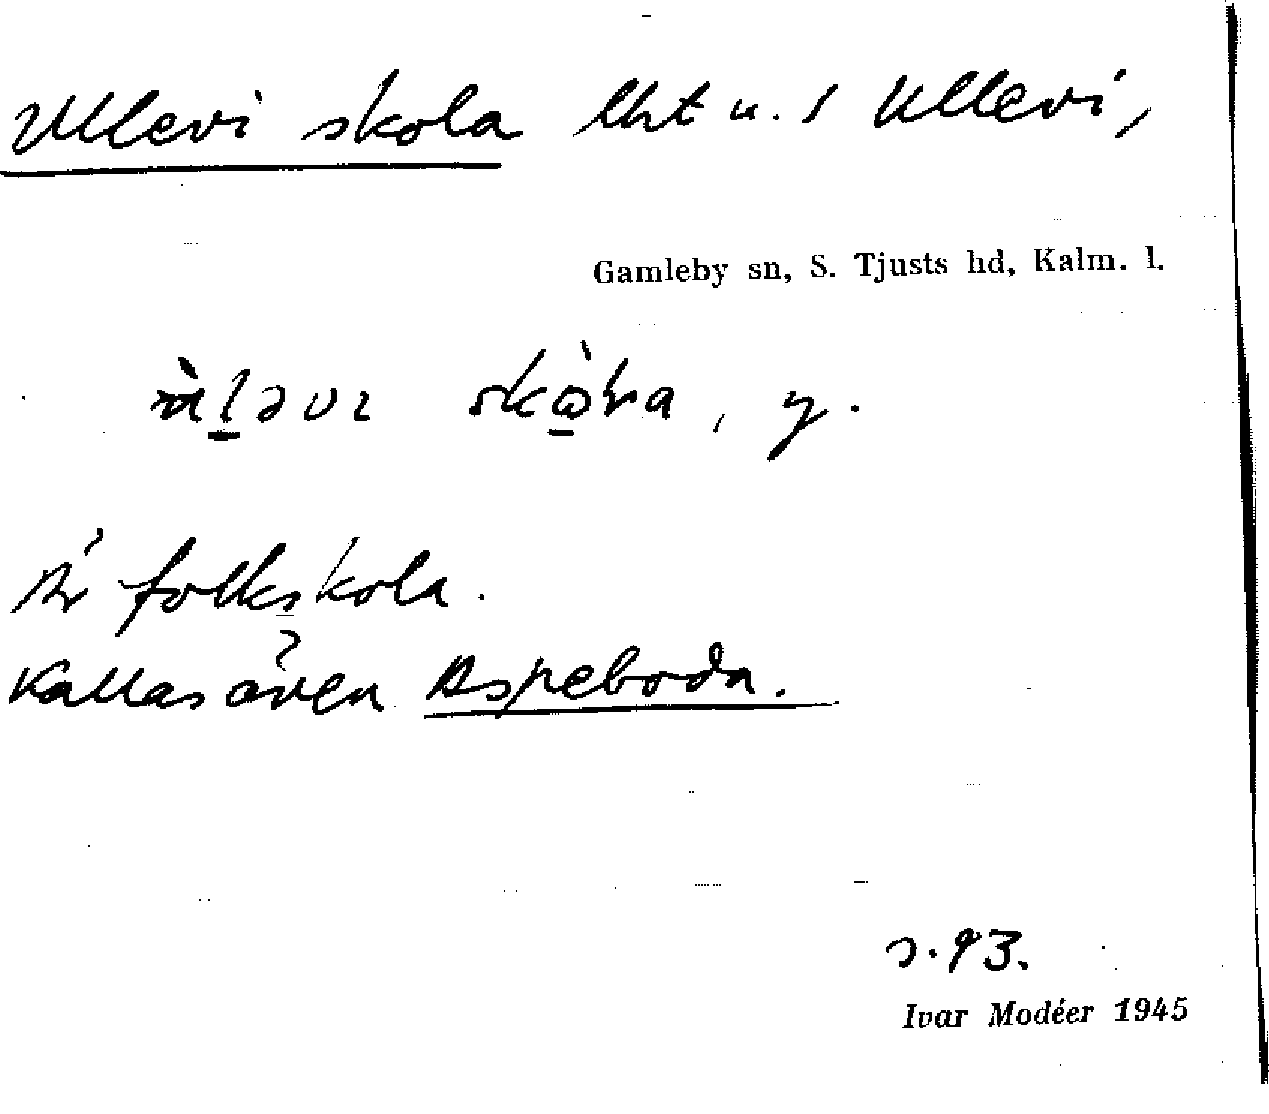 Ullevi skola lht u. 1 Ullevi,
Gamleby sn, S. Tjusts hd, Kalm. l.
y.
Är folkskola.
Kallas även Aspeboda.
s. 93.
Ivar Modéer 1945